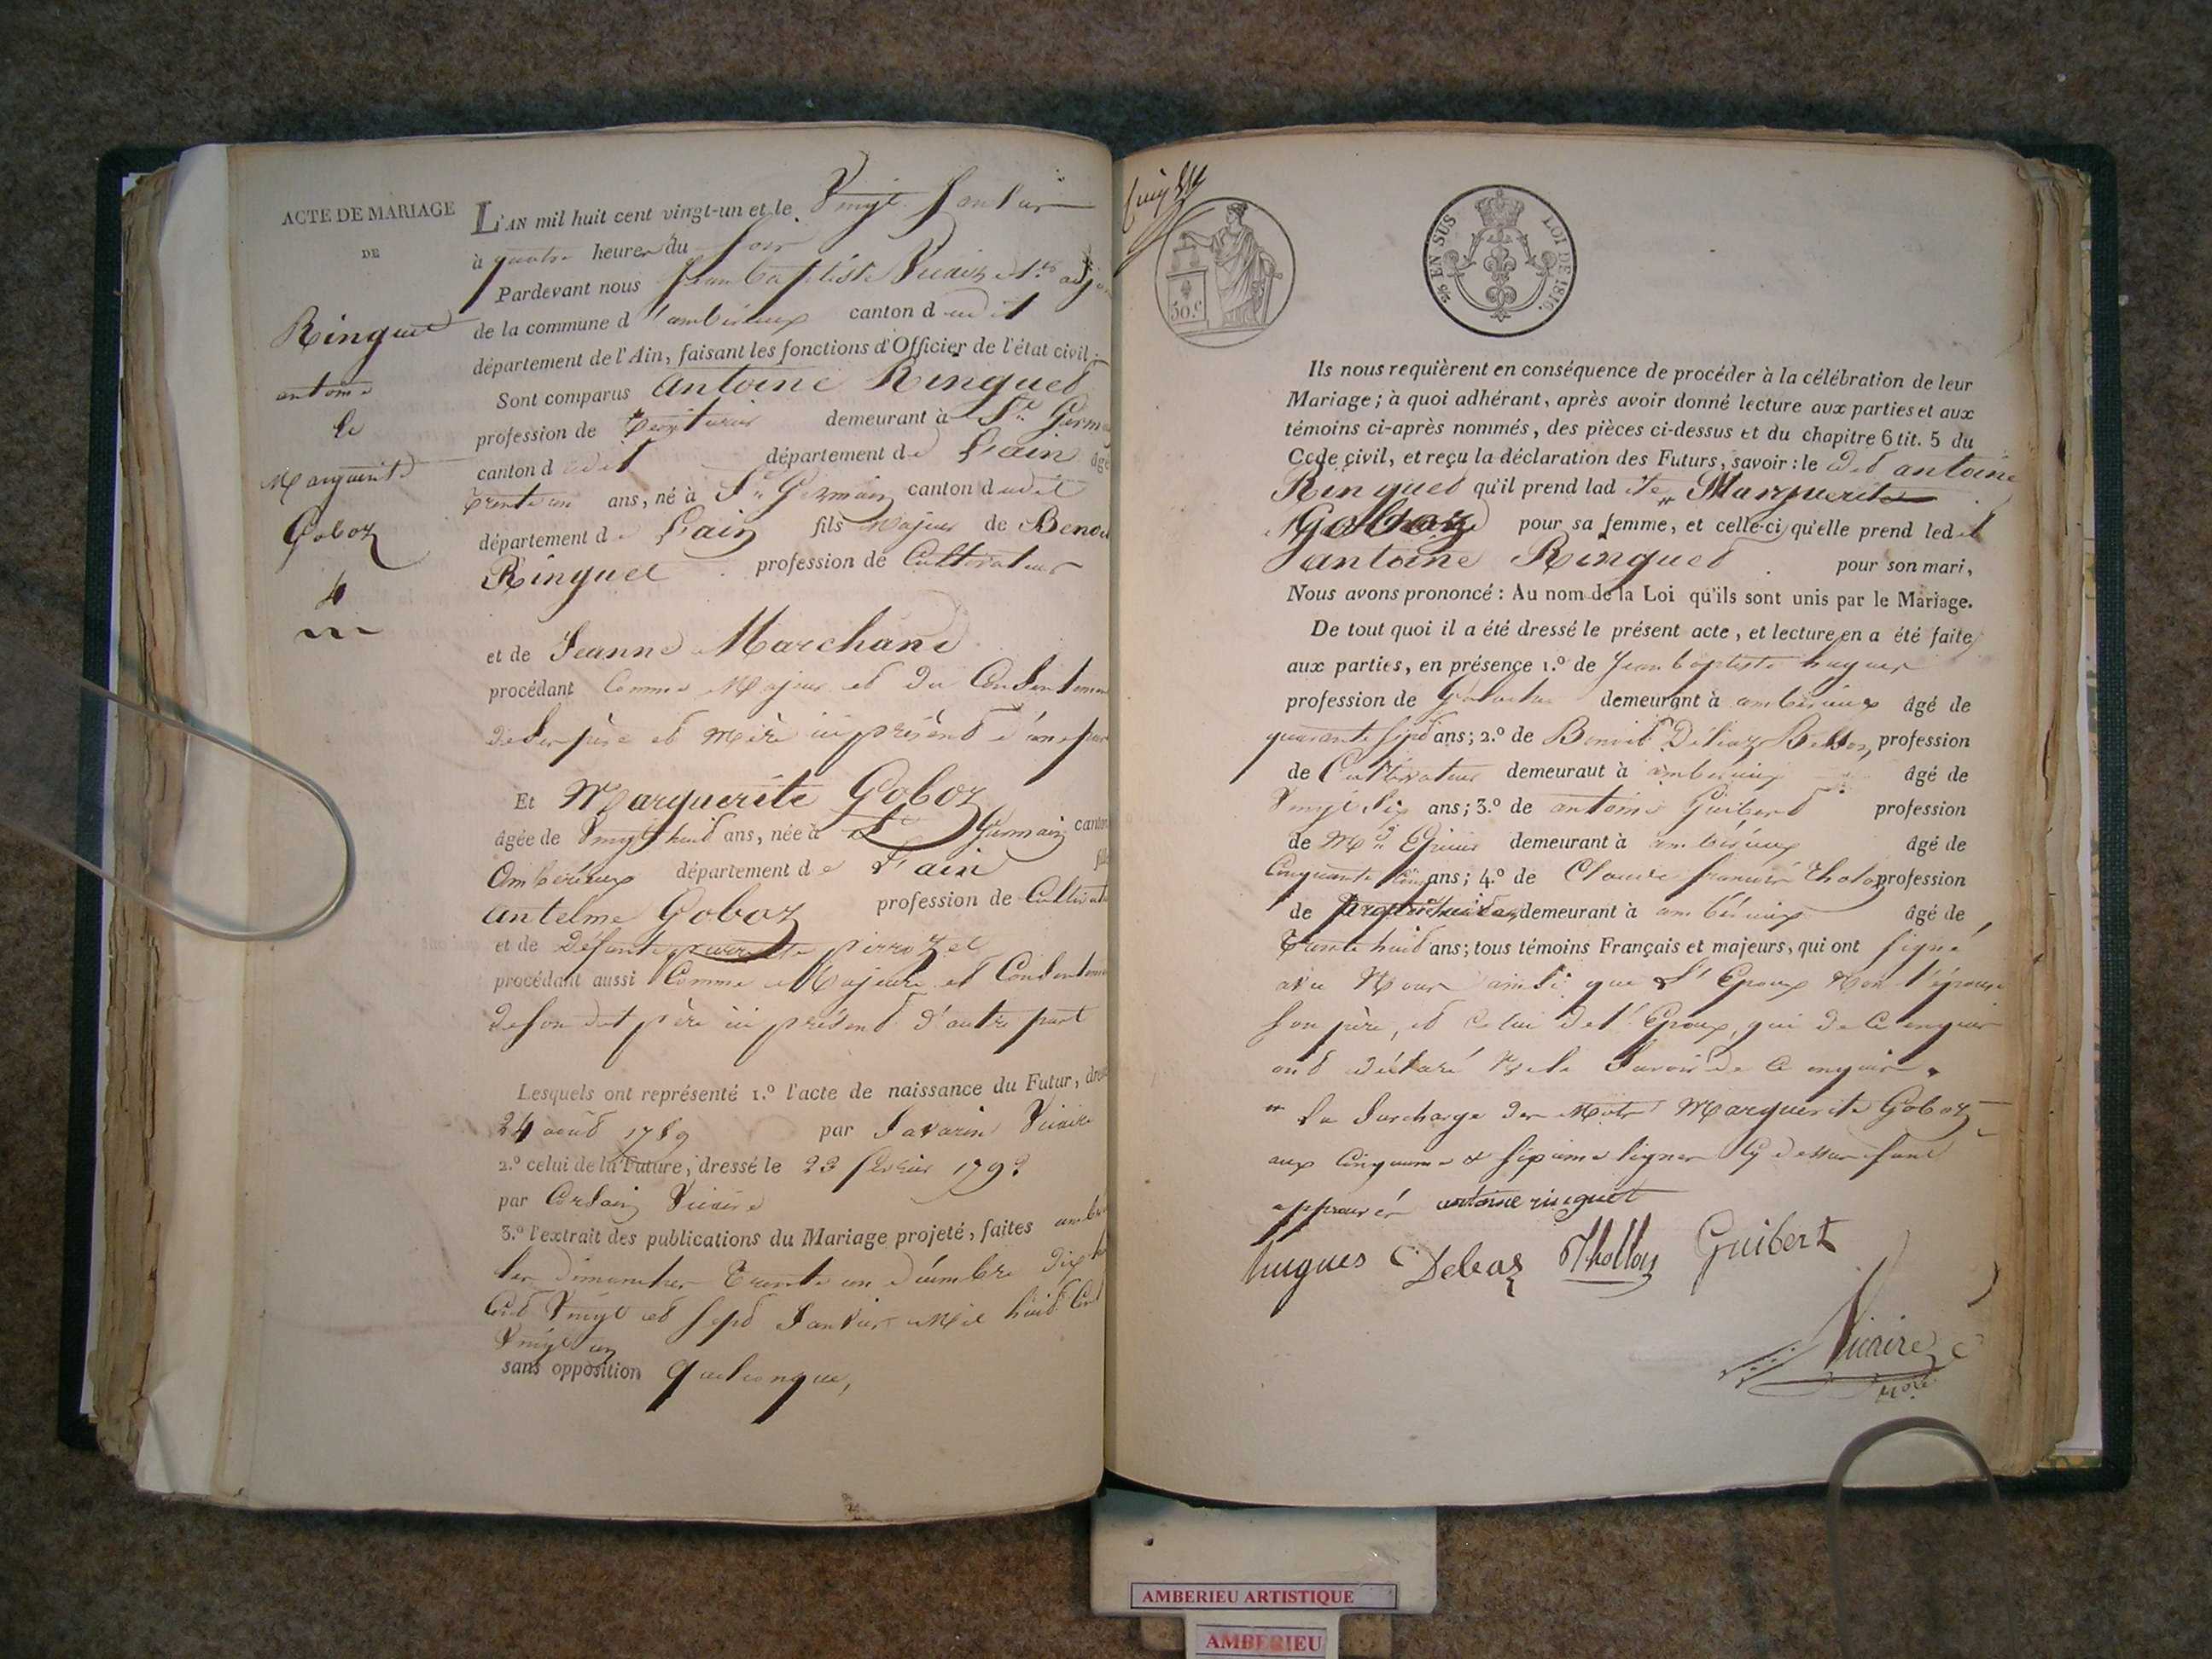 ACTE DE MARIAGE
DE
Ringuet
antoine
&
Marguerite
Goboz
4
L'AN mil huit cent vingt-un et le Vingt Janvier
à quatre heures du soir
Pardevant nous Jean baptiste Vicaire adjoint
de la commune d'ambérieux canton dudit
département de l'Ain, faisant les fonctions d'Officier de l'état civil;
Sont comparus antoine Ringuet
profession de demeurant à St. Germain
canton dudit département de L'ain âgé
trente un ans, né à St. Germain canton dudit
département de L'ain fils majeur de Benoit
Ringuet profession de Cultivateur
et de Jeanne Marchand
procédant Comme Majeur et du Consentement
de ses père et mère ici présent d'une part
Et Marguerite Goboz
âgée de Vingt huit ans, née à St Germain canton
Ambérieux département de L'ain fille
antelme Goboz profession de Cultivateur
et de Défunte pierrette pirrozet
procédant aussi Comme Majeure et Consentement
de son dit père ici présent d'autre part
Lesquels ont représenté 1.º l'acte de naissance du Futur, dressé
24 août 1789 par Savarin Vicaire
2.º celui de la Future, dressé le 23 février 1793
par Vicaire
3.º l'extrait des publications du Mariage projeté, faites
les dimanches trente un décembre dix huit
Cent Vingt et sept Janvier Mil huit Cent
Vingt un
sans opposition quelconque,
50.c
EN SUS
LOI DE 1816.
Ils nous requièrent en conséquence de procéder à la célébration de leur
Mariage; à quoi adhérant, après avoir donné lecture aux parties et aux
témoins ci-après nommés, des pièces ci-dessus et du chapitre 6 tit. 5 du
Code civil, et reçu la déclaration des Futurs, savoir: le dit antoine
Ringuet qu'il prend ladite Marguerite
Goboz pour sa femme, et celle-ci qu'elle prend ledit
antoine Ringuet pour son mari,
Nous avons prononcé: Au nom de la Loi qu'ils sont unis par le Mariage.
De tout quoi il a été dressé le présent acte, et lecture en a été faite
aux parties, en présence 1.º de Jean baptiste hugues
profession de demeurant à ambérieux âgé de
quarante sept ans; 2.º de Benoit Débeaz profession
de Cultivateur demeuraut à ambérieux âgé de
Vingt six ans; 3.º de antoine Guibert profession
de Md. Epicier demeurant à ambérieux âgé de
Cinquante ans; 4.º de Claude françois Tholon profession
de demeurant à ambérieux âgé de
Trente huit ans; tous témoins Français et majeurs, qui ont signé
avec Nous ainsi que L'Epoux Non l'épouse
son père, et celui de l'Epoux, qui de ce enquis
ont déclaré Ne le Savoir de ce enquis.
La Surcharge des Mots Marguerite Goboz
aux Cinquieme & sixieme lignes Cy dessus sont
approuvés antoine ringuet
hugues Debeaz Thollon Guibert
Vicaire
AMBERIEU ARTISTIQUE
AMBERIEU